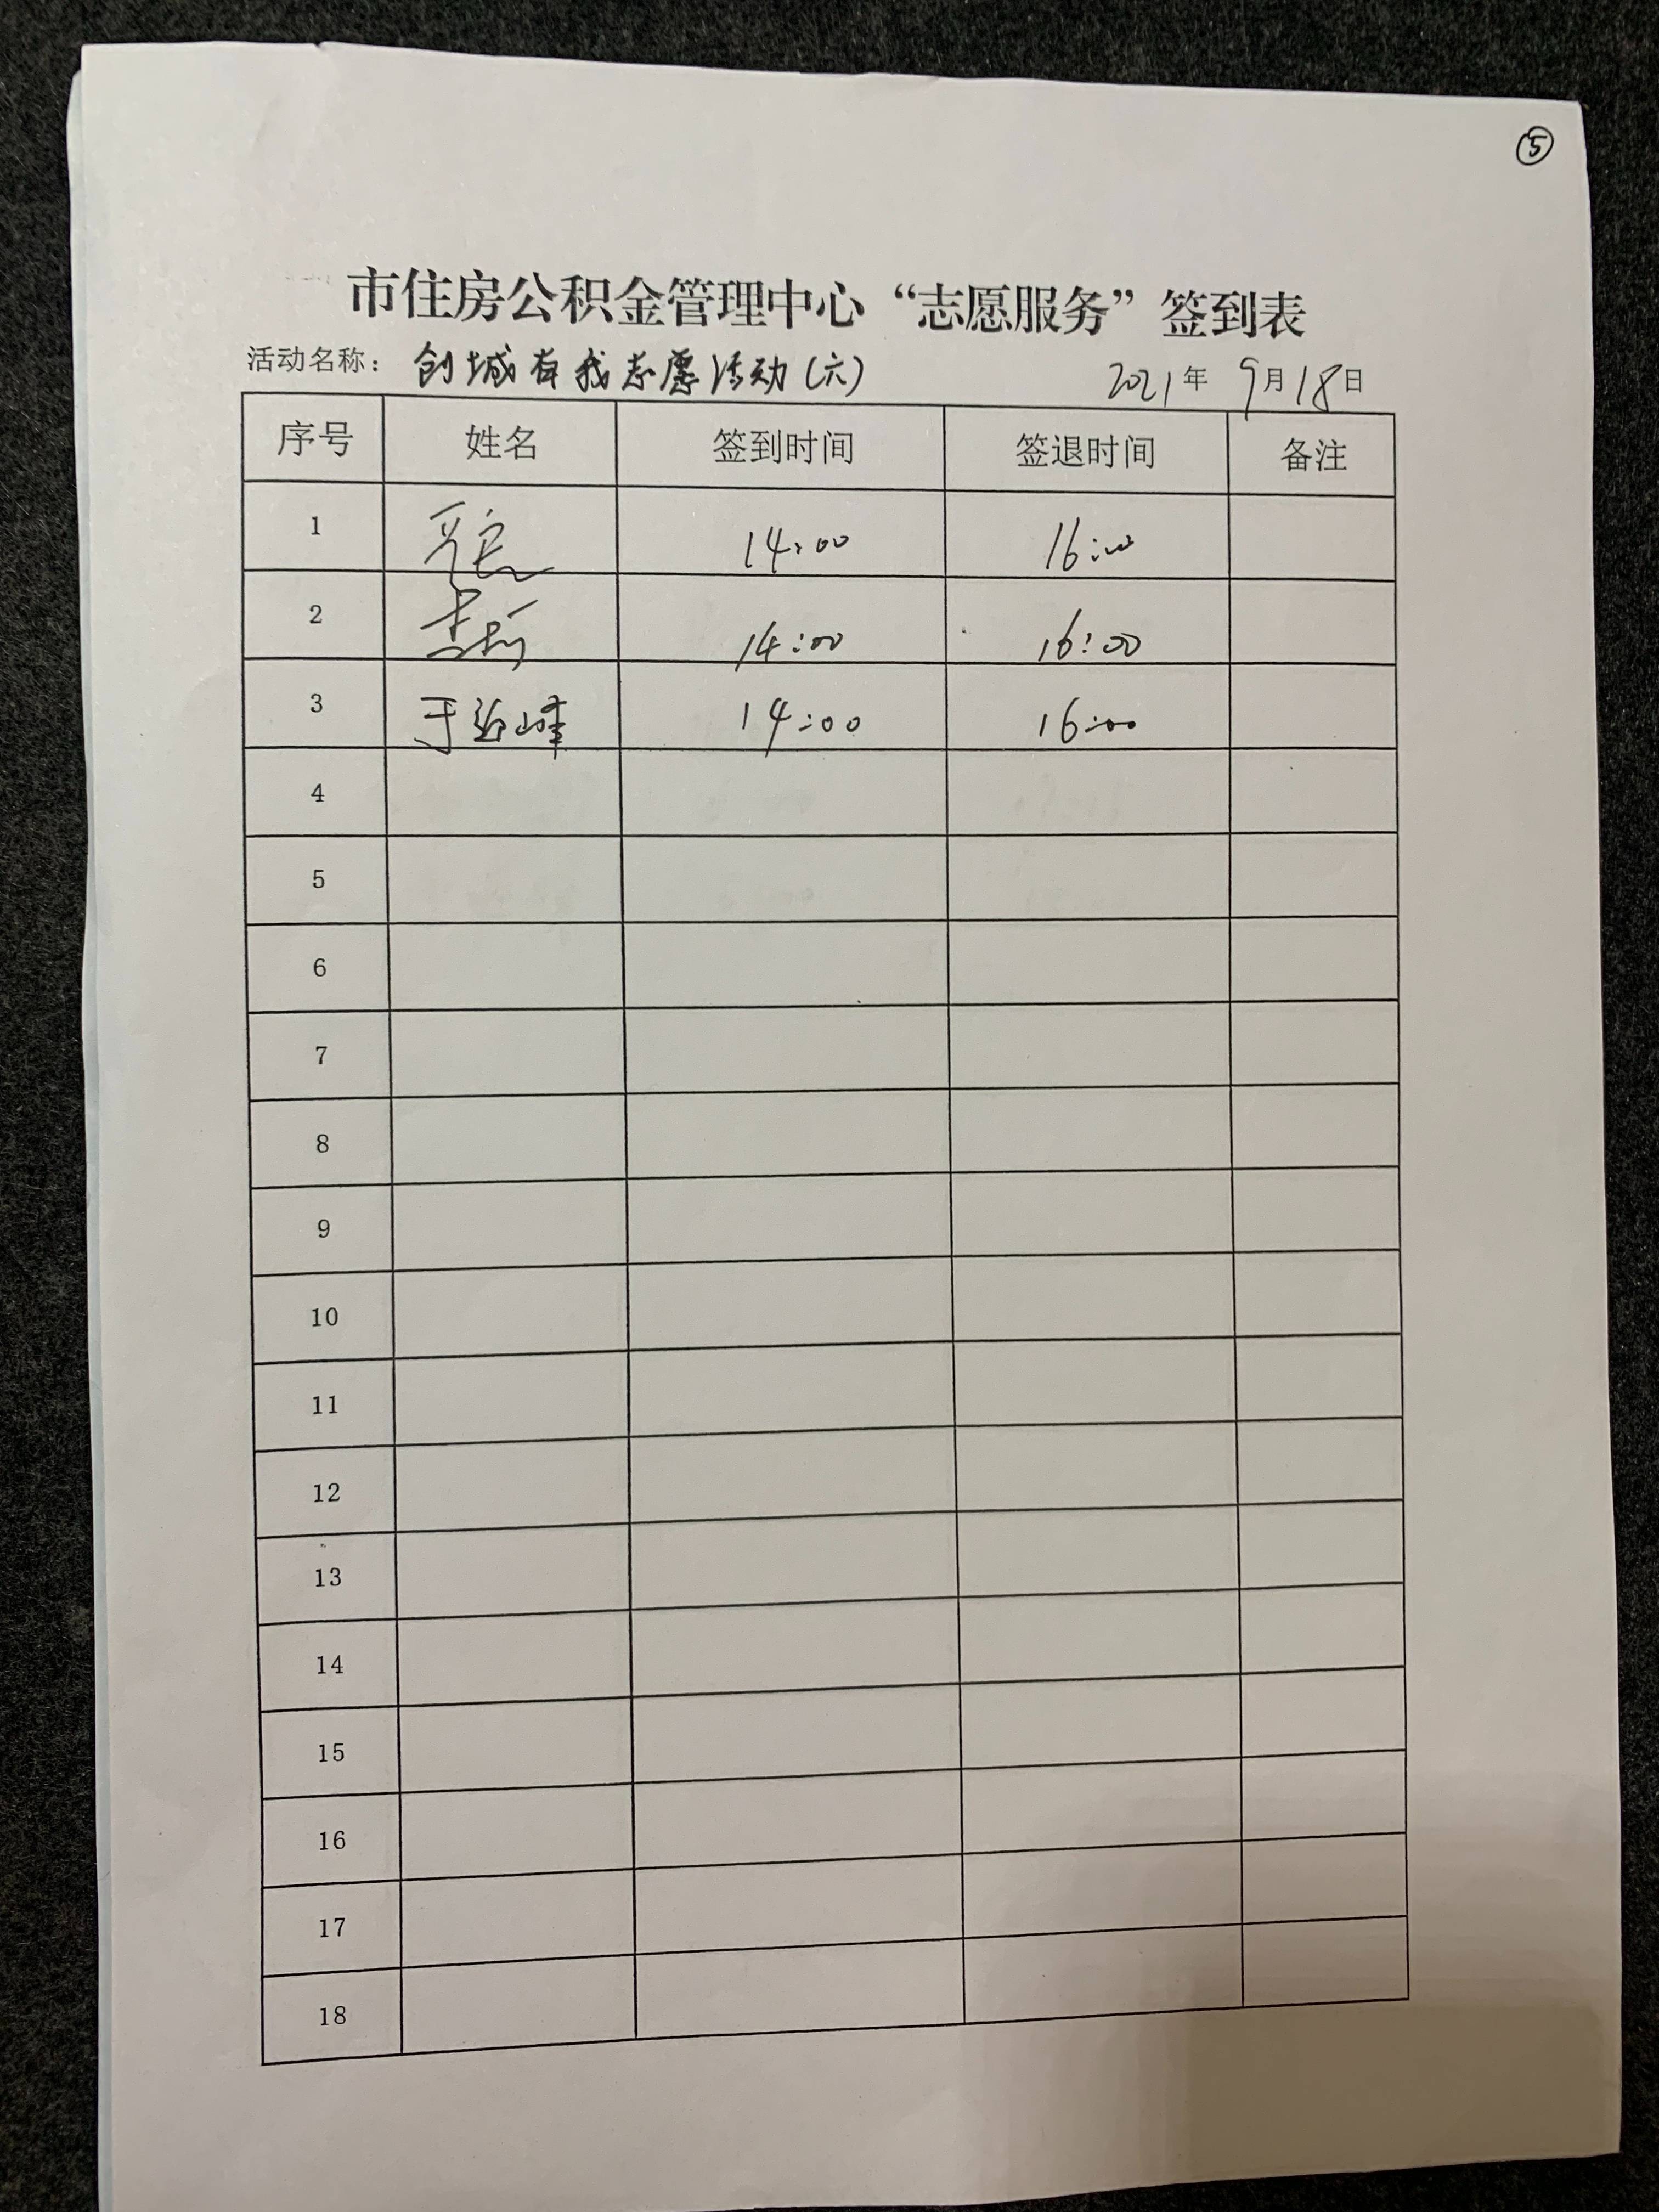 ⑤
市住房公积金管理中心“志愿服务”签到表
活动名称：创城有我志愿活动（六） 2021年 9月18日
序号 姓名 签到时间 签退时间 备注
1 14:00 16:00
2 14:00 16:00
3 于迎峰 14:00 16:00
4
5
6
7
8
9
10
11
12
13
14
15
16
17
18